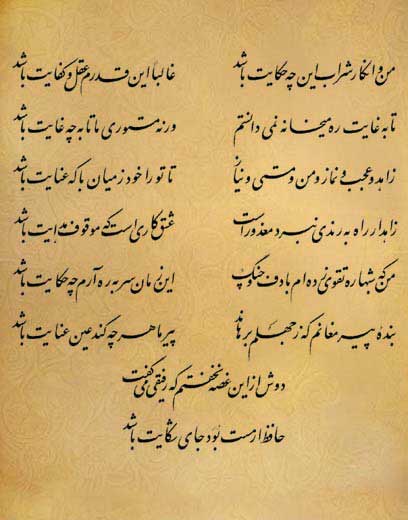 من و انکار شراب این چه حکایت باشد غالباً این قدرم عقل و کفایت باشد
تا به غایت ره میخانه نمی دانستم ورنه مستوری ما تا به چه غایت باشد
زاهد و عجب و نماز و من و مستی و نیاز تا تو را خود ز میان با که عنایت باشد
زاهد ار راه به رندی نبرد معذور است عشق کاری است که موقوف هدایت باشد
من که شبها ره تقوی زده ام با دف و چنگ این زمان سر به ره آرم چه حکایت باشد
بندهٔ پیر مغانم که ز جهلم برهاند پیر ما هر چه کند عین عنایت باشد
دوش از این غصه نخفتم که رفیقی می گفت
حافظ ار مست بود جای شکایت باشد